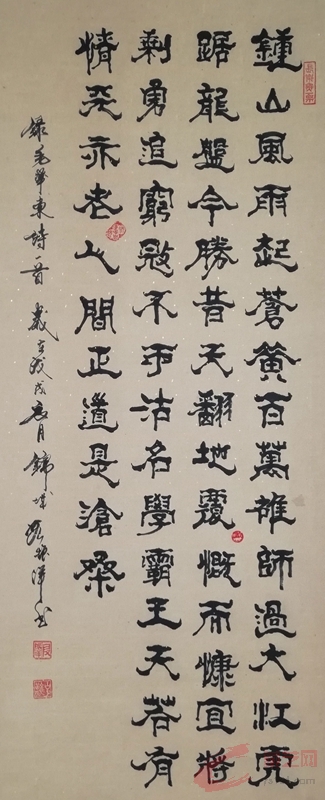 鍾山風雨起蒼黃百萬雄師過大江虎
踞龍盤今勝昔天翻地覆慨而慷宜將
剩勇追窮寇不可沽名學霸王天若有
情天亦老人間正道是滄桑
錄毛澤東詩一首 歲在 月 錦城 書